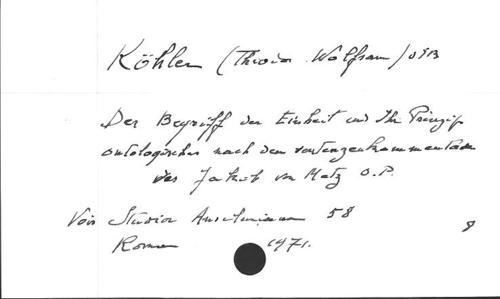 Köhler (Theodor Wolfram) OSB
Der Begriff der Einheit und Ihr Prinzip
ontologisches nach dem sentenzenkommentar
des Jakob von Metz O.P.
Voir Studia Anselmiana 58
Roma 1971.